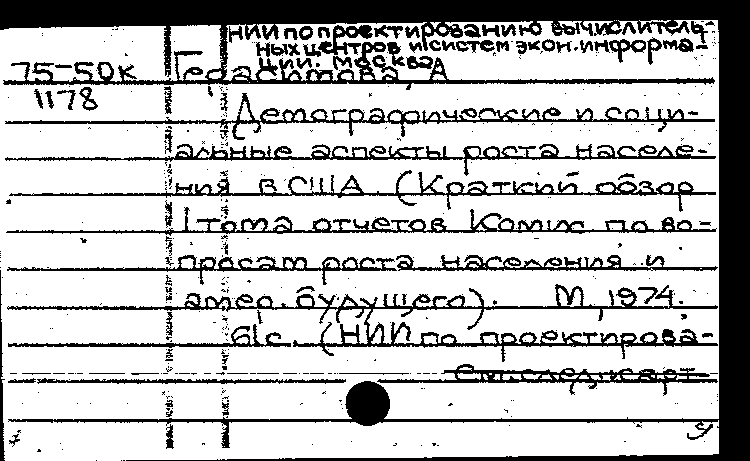 НИИ по проектированию вычислитель-
ных центров и систем экон. информа-
ции. Москва
75-50к Герасимова, А
1178
Демографические и соци-
альные аспекты роста населе-
ния в США. (Краткий обзор
I тома отчетов Комис по во-
просам роста населения и
амер. будущего). М., 1974.
61с. (НИИ по проектирова-
См. след. карт